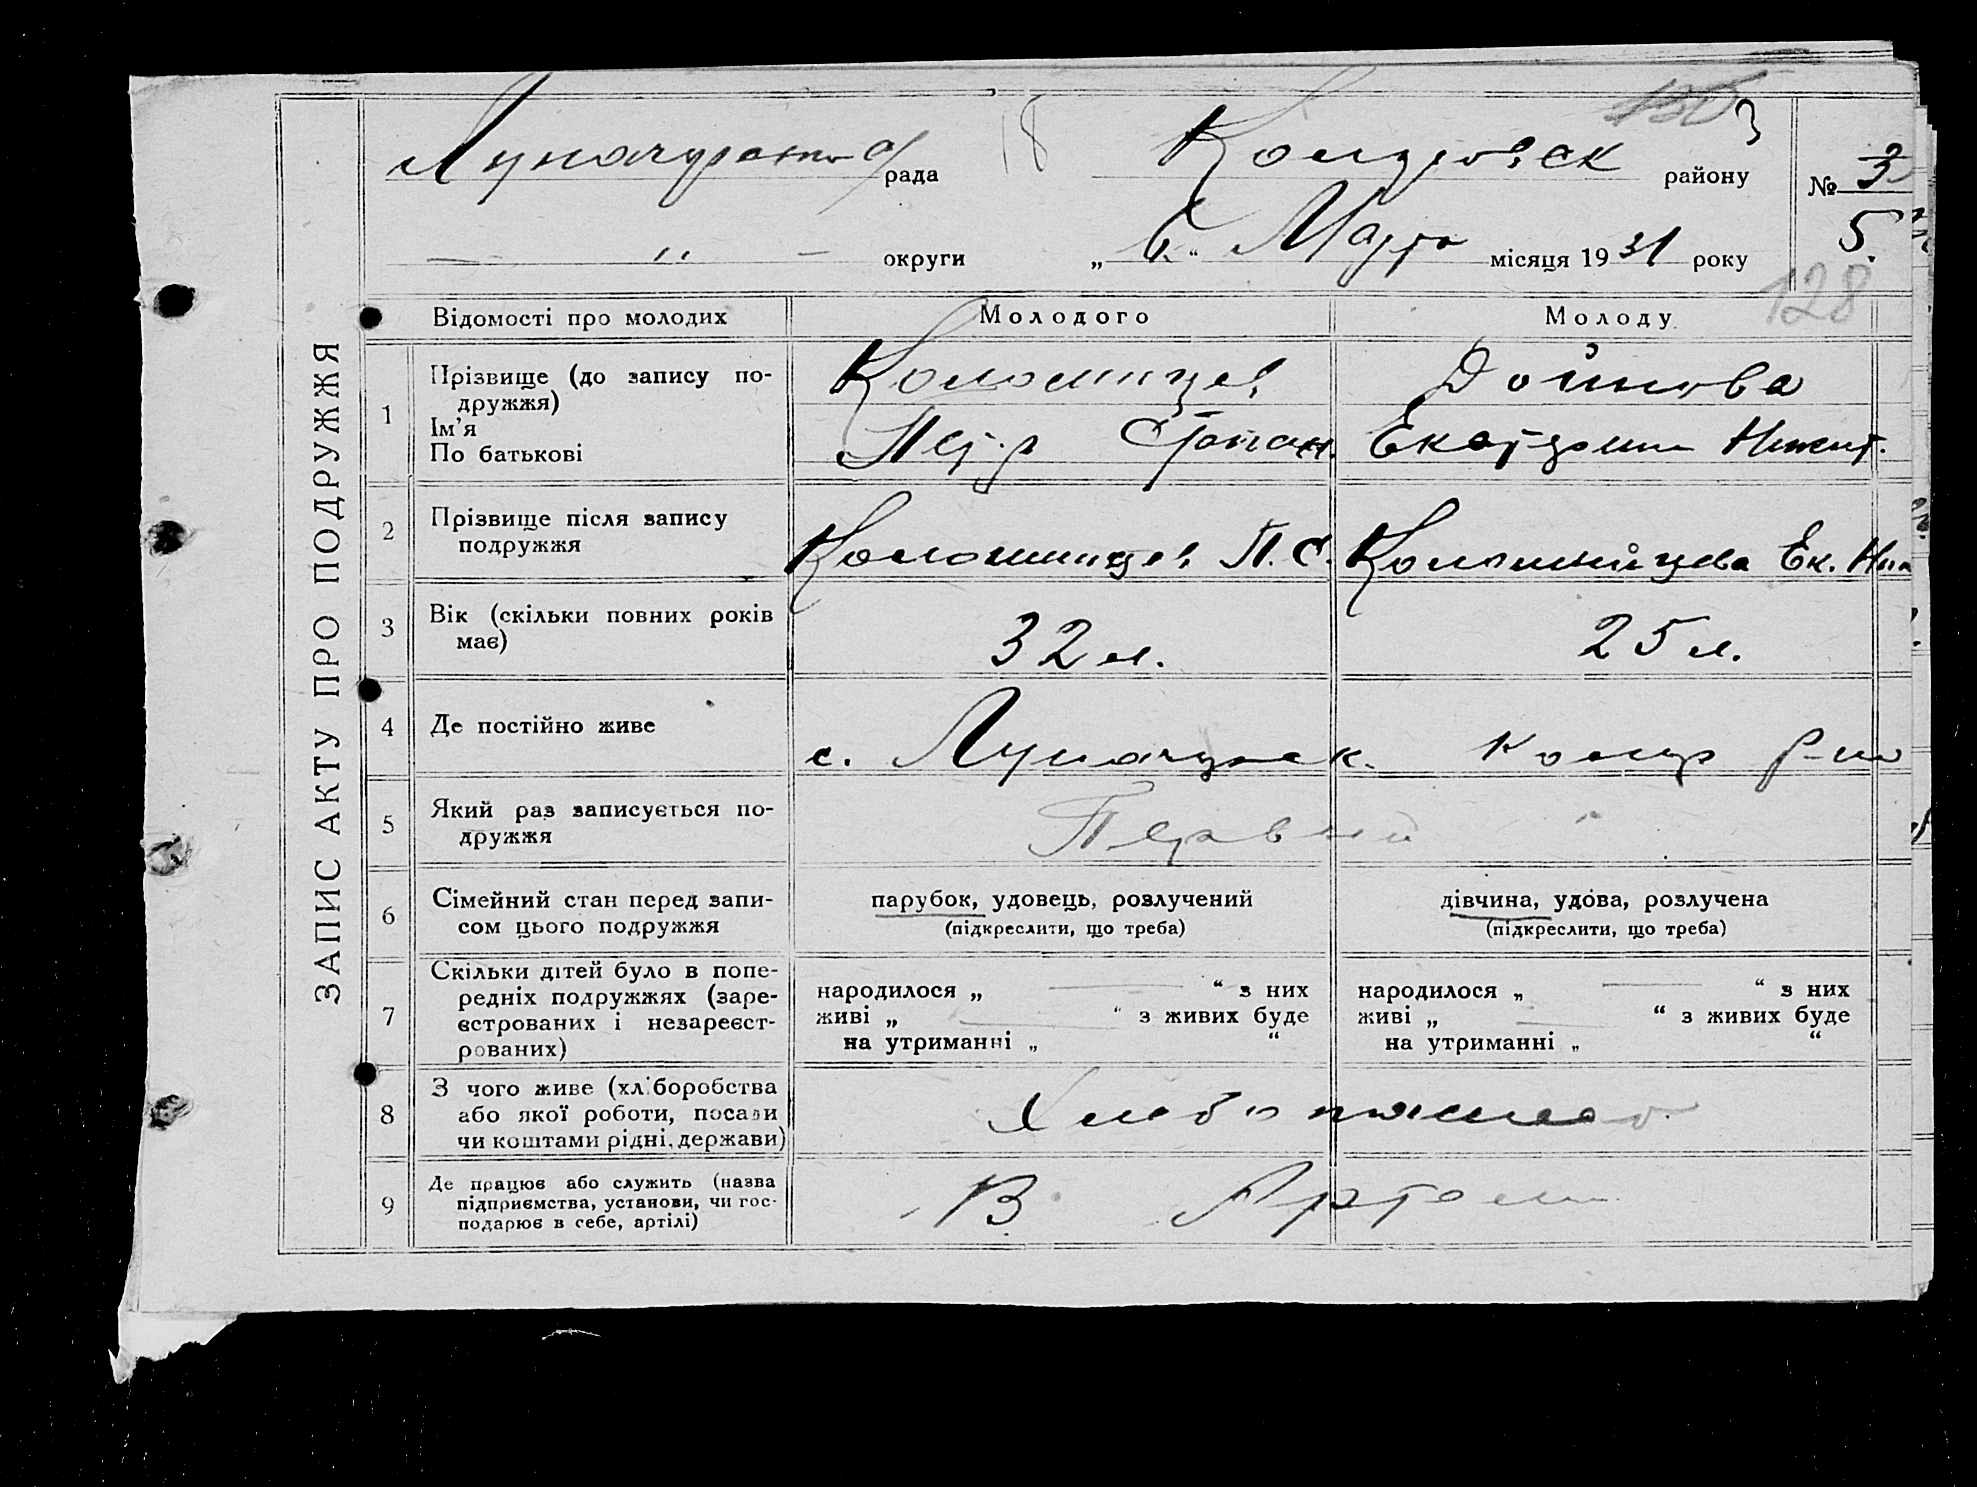 рада
18
районy
№ 3
5.
" — округи
„ 6. “ Марта місяця 1931 року
128
ЗАПИС АКТУ ПРО ПОДРУЖЖЯ
Відомості про молодих
Молодого
Молоду
1
Прізвище (до запису по-
дружжя)
Ім’я
По батькові
Коломицев
Петр Степан.
Дойнова
Екатерина
2
Прізвище після запису
подружжя
П. С.
Ек.
3
Вік (скільки повних років
має)
32 л.
25 л.
4
Де постійно живе
с.
р-на
5
Який раз записується по-
дружжя
Первый
6
Сімейний стан перед запи-
сом цього подружжя
парубок, удовець, розлучений
(підкреслити, що треба)
дівчина, удова, розлучена
(підкреслити, що треба)
7
Скільки дітей було в попе-
редніх подружжях (заре-
єстрованих і незареєст-
рованих)
народилося „ — “ з них
живі „ — “ з живих буде
на утриманні „ “
народилося „ — “ з них
живі „ — “ з живих буде
на утриманні „ “
8
З чого живе (хліборобства
або якої роботи, посади
чи коштами рідні, держави)
9
Де працює або служить (назва
підприємства, установи, чи гос-
подарює в себе, артілі)
В Артели